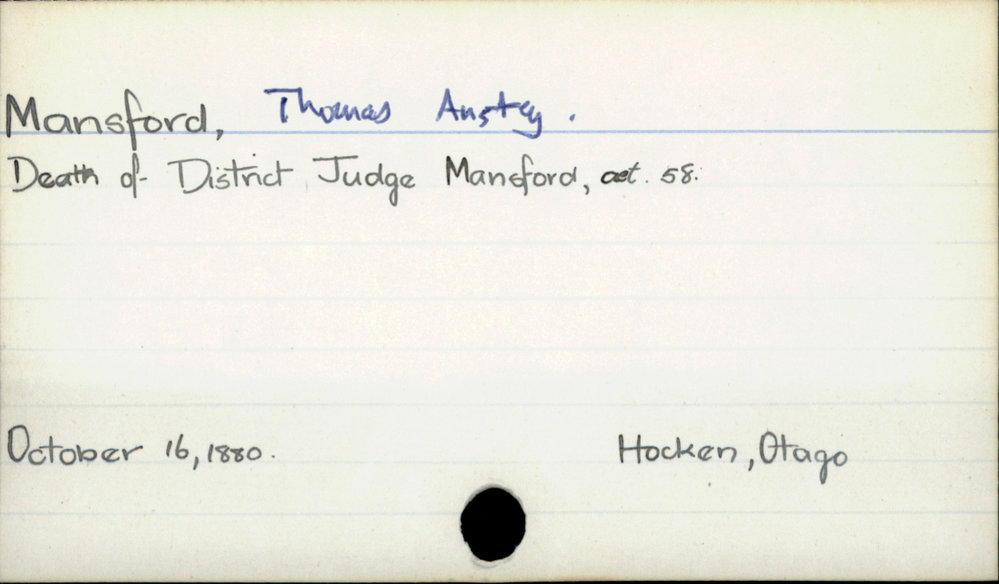 Mansford, Thomas Anstey.
Death of District Judge Mansford, aet. 58.
October 16, 1880. Hocken, Otago